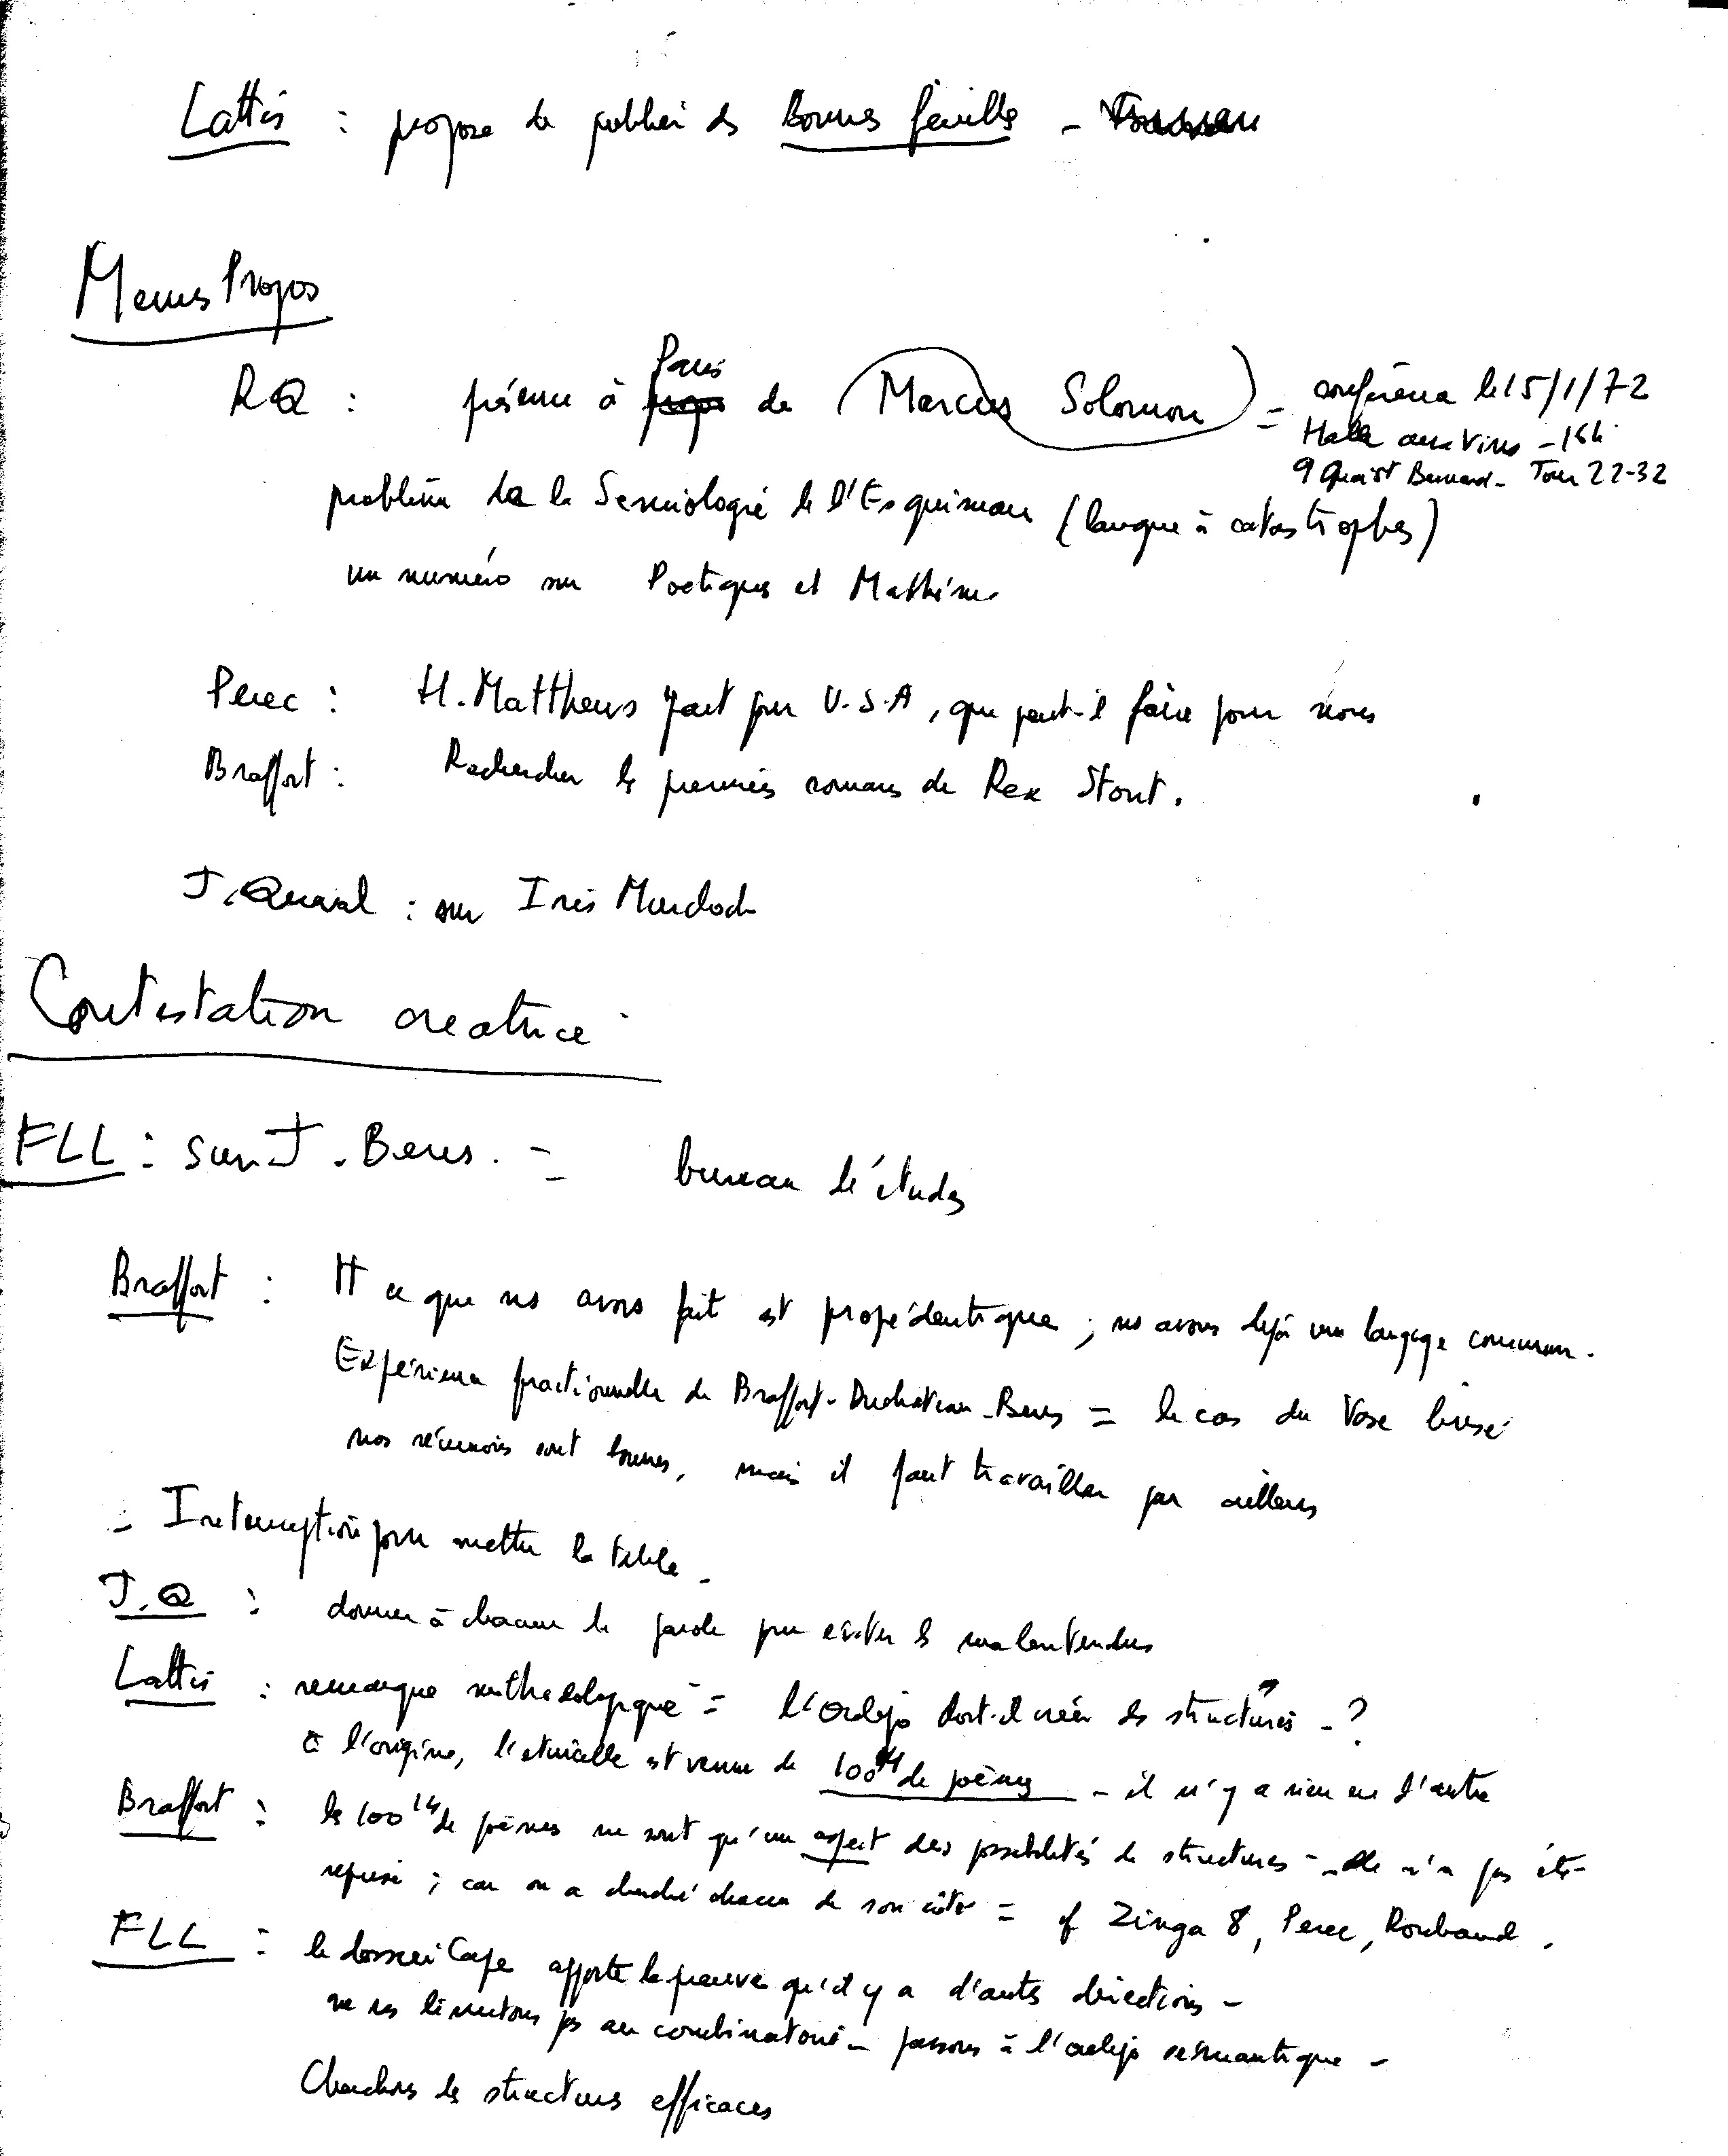 Lattis : propose de publier des Bonnes feuilles -
Menus Propos
RQ : présence à Paris de (Marcus Solomon) = conférence le 15/1/72
Halle aux Vins - 16h
9 Quai St Bernard - Tour 22-32
problème de la Semiologie de l'Esquimau (langue à catastrophes)
un numéro sur Poetiques et Mathém.
Perec : H. Matthews part pour U.S.A, que peut-il faire pour nous
Braffort : Rechercher les premiers romans de Rex Stout.
J. Queval : sur Iris Murdoch
Contestation creatrice
FLL : sur J. Bens. = bureau d'études
Braffort : Tt ce que ns avons fait est propédeutique ; ns avons déjà un langage commun.
Expérience fractionnelle de Braffort - Duchateau - Bens = le cas du Vase brisé
nos réunions sont bonnes, mais il faut travailler par ailleurs
- Interruption pour mettre la table -
J.Q : donner à chacun la parole pour éviter les malentendus
Lattis : remarque méthodologique = l'Oulipo doit-il créer des structures - ?
à l'origine, l'étincelle est venue de 100^14 de poèmes - il n'y a rien eu d'autre
Braffort : les 100^14 de poèmes ne sont qu'un aspect des possibilités de structures - elle n'a pas été
reprise ; car on a cherché chacun de son côté = cf Zinga 8, Perec, Roubaud.
FLL : le dossier Cape apporte la preuve qu'il y a d'autres directions -
ne ns limitons pas au combinatoire - passons à l'oulipo sémantique -
Cherchons des structures efficaces